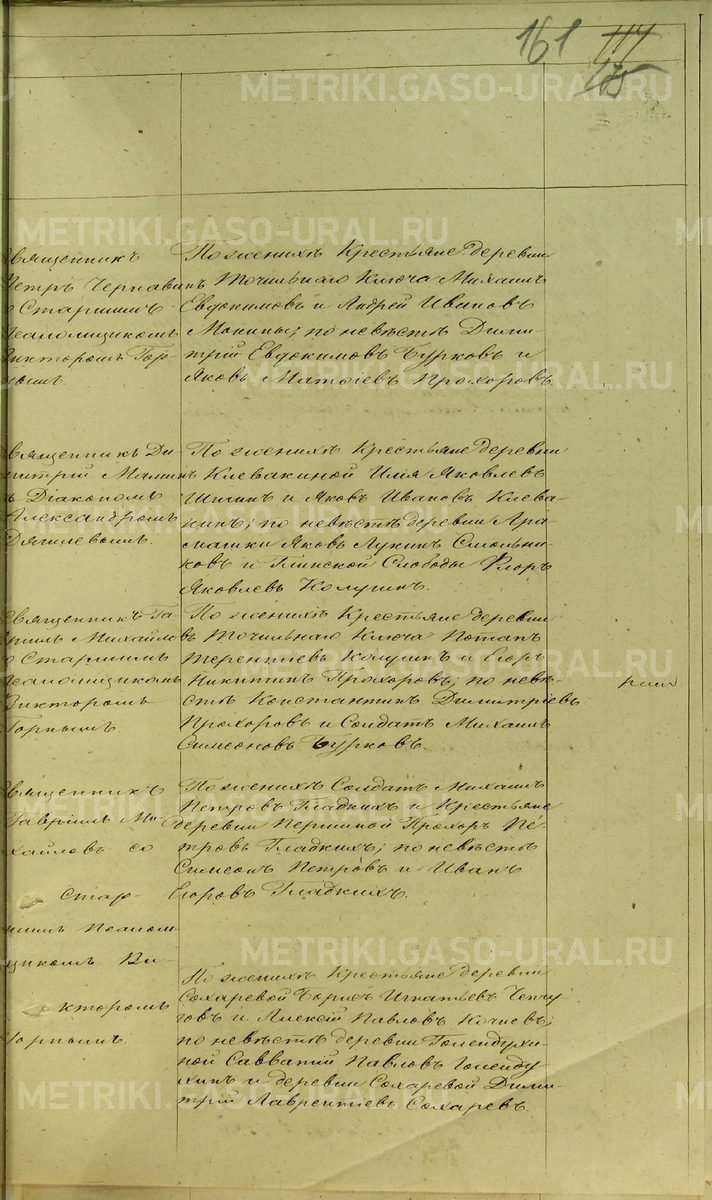 161 114
175
METRIKI.GASO-URAL.RU
Священникъ
Петръ Чернавинъ
о Старшимъ
Псаломщикомъ
Викторомъ Гор-
нымъ.
По женихѣ Крестьяне деревни
Точильнаго Ключа Михаилъ
Евдокимовъ и Андрей Ивановъ
Мокины; по невѣстѣ Дими-
трій Евдокимовъ Бурковъ и
Яковъ Матѳіевъ Прохоровъ.
Священникъ Ди-
митрій Маминъ
ъ Діакономъ
Александромъ
Дягилевымъ.
По женихѣ Крестьяне деревни
Клевакиной Илія Яковлевъ
Шилинъ и Яковъ Ивановъ Клева-
кинъ; по невѣстѣ деревни Ара-
машки Яковъ Лукинъ Смольни-
ковъ и Глинской Слободы Флоръ
Яковлевъ Колугинъ.
Священникъ Га-
вріилъ Михайловъ
о Старшимъ
Псаломщикомъ
Викторомъ
Горнымъ
По женихѣ Крестьяне деревни
Точильнаго Ключа Потапъ
Терентіевъ Колугинъ и Егоръ
Никитинъ Прохоровъ; по невѣ-
стѣ Константинъ Димитріевъ
Прохоровъ и Солдатъ Михаилъ
Симеоновъ Бурковъ.
Священникъ
Гавріилъ Ми-
хайловъ со
Стар-
шимъ Псалом-
щикомъ Ви-
кторомъ
Горнымъ.
По женихѣ Солдатъ Михаилъ
Петровъ Гладкихъ и Крестьяне
деревни Першиной Прохоръ Пе-
тровъ Гладкихъ; по невѣстѣ
Симеонъ Петровъ и Иванъ
Егоровъ Гладкихъ.
По женихѣ Крестьяне деревни
Сохаревой Борисъ Игнатьевъ Чепчу-
говъ и Алексій Павловъ Кочневъ;
по невѣстѣ деревни Голендухи-
ной Савватій Павловъ Голенду-
хинъ и деревни Сохаревой Дими-
трій Лаврентіевъ Сохаревъ.